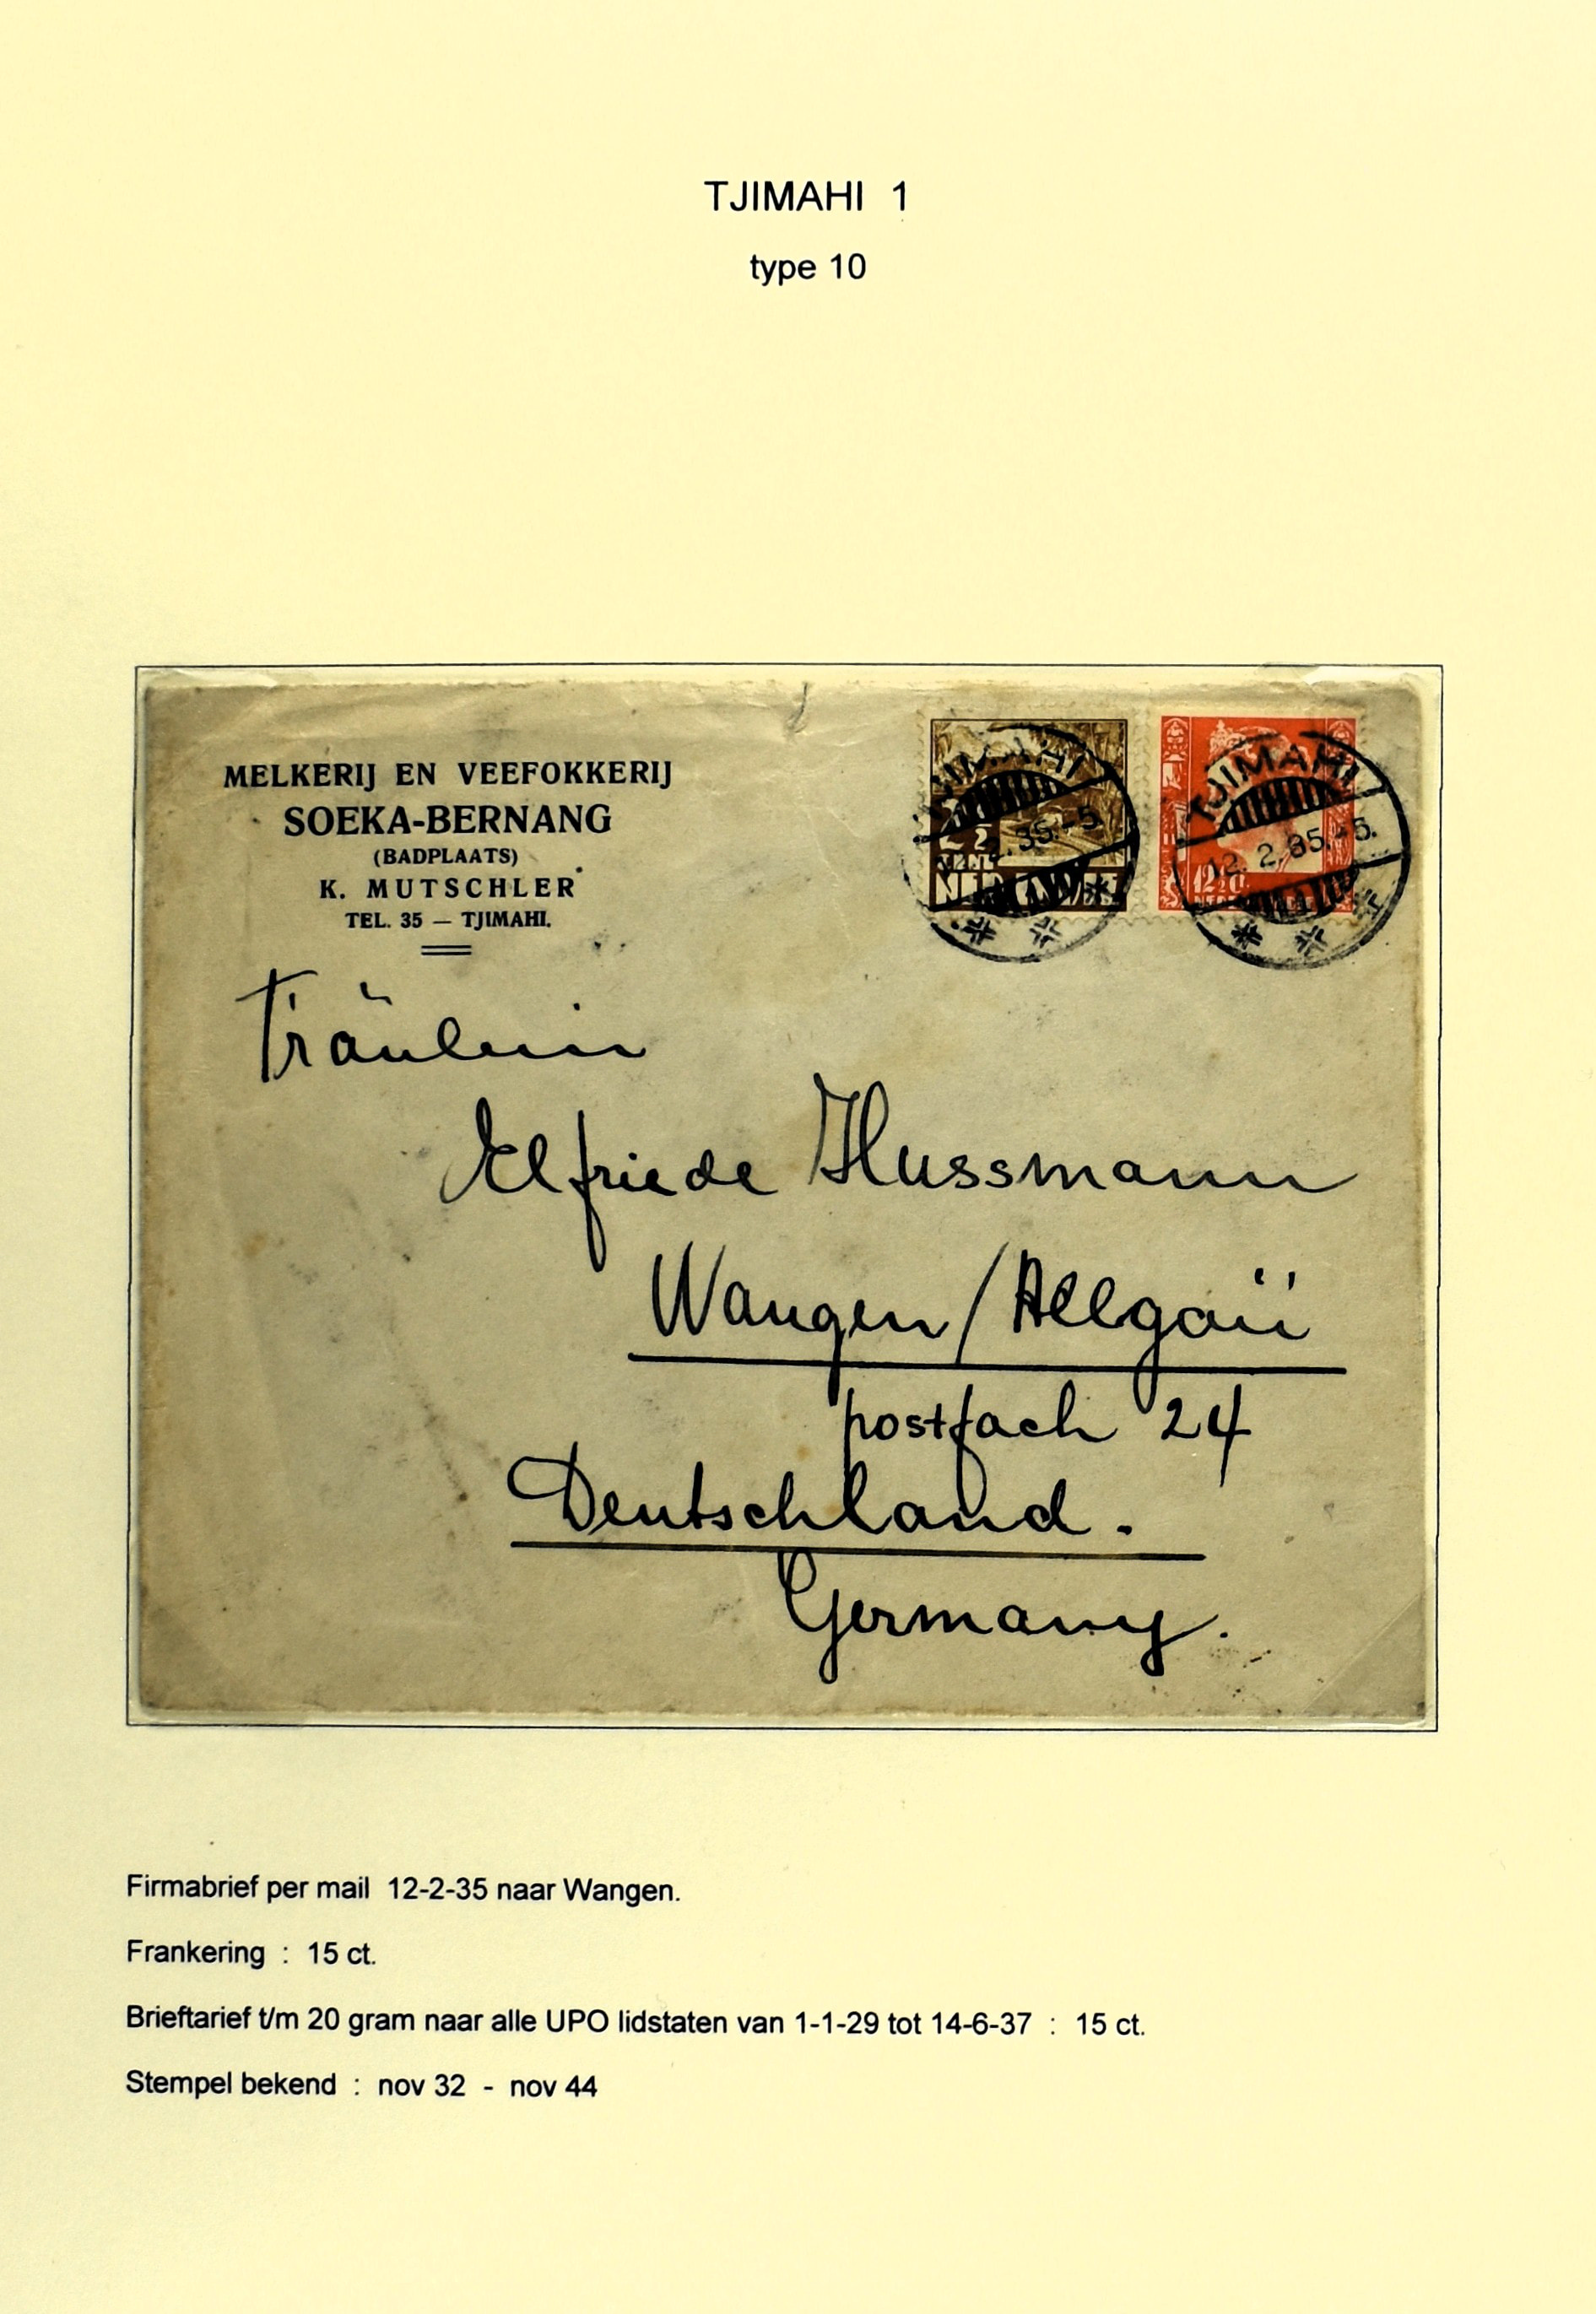 TJIMAHI 1
type 10
MELKERIJ EN VEEFOKKERIJ
SOEKA-BERNANG
(BADPLAATS)
K. MUTSCHLER
TEL. 35 — TJIMAHI.
TJIMAHI
2.35.-5.
TJIMAHI
12.2.35.-5.
12½ ct.
Fräulein
Elfriede Hussmann
Wangen/Allgäu
postfach 24
Deutschland.
Germany.
Firmabrief per mail 12-2-35 naar Wangen.
Frankering : 15 ct.
Brieftarief t/m 20 gram naar alle UPO lidstaten van 1-1-29 tot 14-6-37 : 15 ct.
Stempel bekend : nov 32 - nov 44